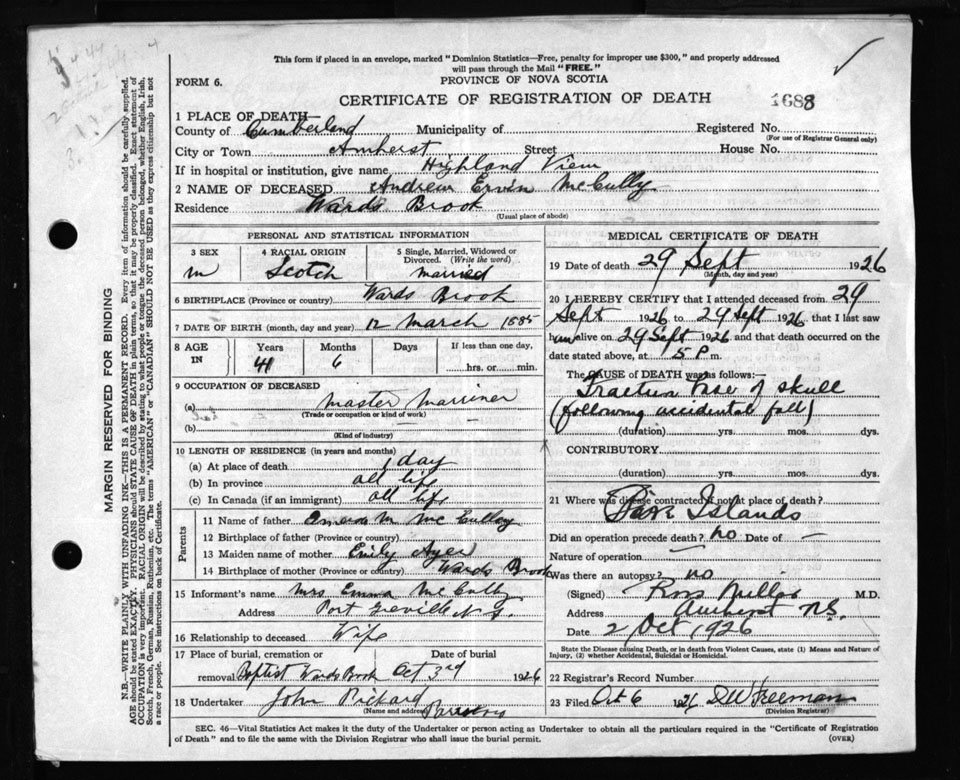 This form if placed in an envelope, marked "Dominion Statistics—Free, penalty for improper use $300," and properly addressed
will pass through the Mail "FREE."
FORM 6.
PROVINCE OF NOVA SCOTIA
CERTIFICATE OF REGISTRATION OF DEATH
1688
1 PLACE OF DEATH—
County of Cumberland Municipality of
Registered No.
(For use of Registrar General only)
City or Town Amherst Street House No.
If in hospital or institution, give name Highland View
2 NAME OF DECEASED Andrew Ervin McCully
Residence Wards Brook
(Usual place of abode)
PERSONAL AND STATISTICAL INFORMATION
3 SEX
m
4 RACIAL ORIGIN
Scotch
5 Single, Married, Widowed or
Divorced. (Write the word)
married
6 BIRTHPLACE (Province or country) Wards Brook
7 DATE OF BIRTH (month, day and year) 12 March 1885
8 AGE
IN
Years Months Days If less than one day,
41 6 hrs. or min.
9 OCCUPATION OF DECEASED
(a) Master Marriner
(Trade or occupation or kind of work)
(b)
(Kind of industry)
10 LENGTH OF RESIDENCE (in years and months)
(a) At place of death 1 day
(b) In province all life
(c) In Canada (if an immigrant) all life
Parents
11 Name of father M McCulley
12 Birthplace of father (Province or country)
13 Maiden name of mother Emily Ayer
14 Birthplace of mother (Province or country) Wards Brook
15 Informant's name Mrs Emma McCully
Address Port Greville N S.
16 Relationship to deceased Wife
17 Place of burial, cremation or Date of burial
removal Baptist Wards Brook Oct 3rd 1926
18 Undertaker John Pickard
(Name and address) Parrsboro
MEDICAL CERTIFICATE OF DEATH
19 Date of death 29 Sept 1926
(Month, day and year)
20 I HEREBY CERTIFY that I attended deceased from 29
Sept 1926 to 29 Sept 1926 that I last saw
him alive on 29 Sept 1926 and that death occurred on the
date stated above, at 5 P m.
The CAUSE of DEATH was as follows:—
Fracture base of skull
(following accidental fall)
(duration) yrs. mos. dys.
CONTRIBUTORY
(duration) yrs. mos. dys.
21 Where was disease contracted if not at place of death?
Islands
Did an operation precede death? no Date of —
Nature of operation
Was there an autopsy? no
(Signed) Ross Millar M.D.
Address Amherst N.S.
Date 2 Oct 1926
State the Disease causing Death, or in death from Violent Causes, state (1) Means and Nature of
Injury, (2) whether Accidental, Suicidal or Homicidal.
22 Registrar's Record Number
23 Filed Oct 6 1926 Freeman
(Division Registrar)
SEC. 46—Vital Statistics Act makes it the duty of the Undertaker or person acting as Undertaker to obtain all the particulars required in the "Certificate of Registration
of Death" and to file the same with the Division Registrar who shall issue the burial permit.
(OVER)
MARGIN RESERVED FOR BINDING
N.B.—WRITE PLAINLY WITH UNFADING INK—THIS IS A PERMANENT RECORD. Every item of information should be carefully supplied.
AGE should be stated EXACTLY. PHYSICIANS should STATE CAUSE OF DEATH in plain terms, so that it may be properly classified. Exact statement of
OCCUPATION is very important. RACIAL ORIGIN will be described by stating to what people or tongue the deceased person belonged, whether English, Irish,
Scotch, French, German, Russian, Ruthenian, etc. The terms "AMERICAN" or "CANADIAN" SHOULD NOT BE USED as they express citizenship but not
a race or people. See instructions on back of Certificate.